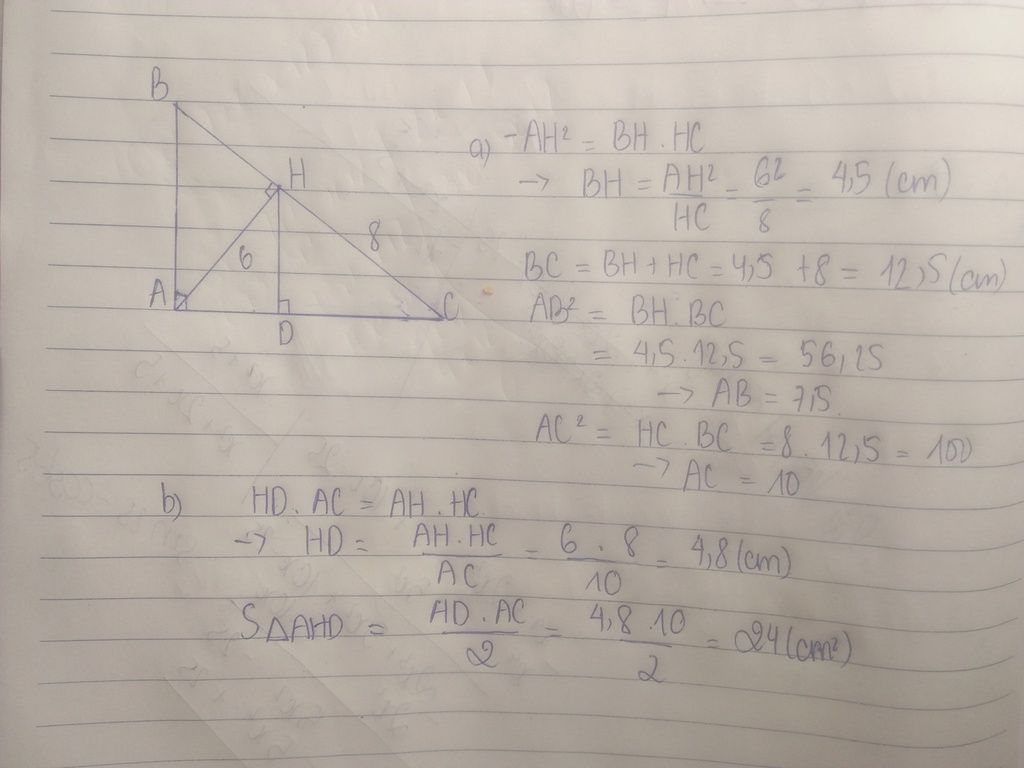 B
H
8
6
A
C
D
a) - AH² = BH . HC
→ BH = AH²/HC = 6²/8 = 4,5 (cm)
BC = BH + HC = 4,5 + 8 = 12,5 (cm)
AB² = BH . BC
= 4,5 . 12,5 = 56,25
→ AB = 7,5
AC² = HC . BC = 8 . 12,5 = 100
→ AC = 10
b) HD . AC = AH . HC
→ HD = AH . HC/AC = 6 . 8/10 = 4,8 (cm)
S△AHD = HD . AC/2 = 4,8 . 10/2 = 24 (cm²)